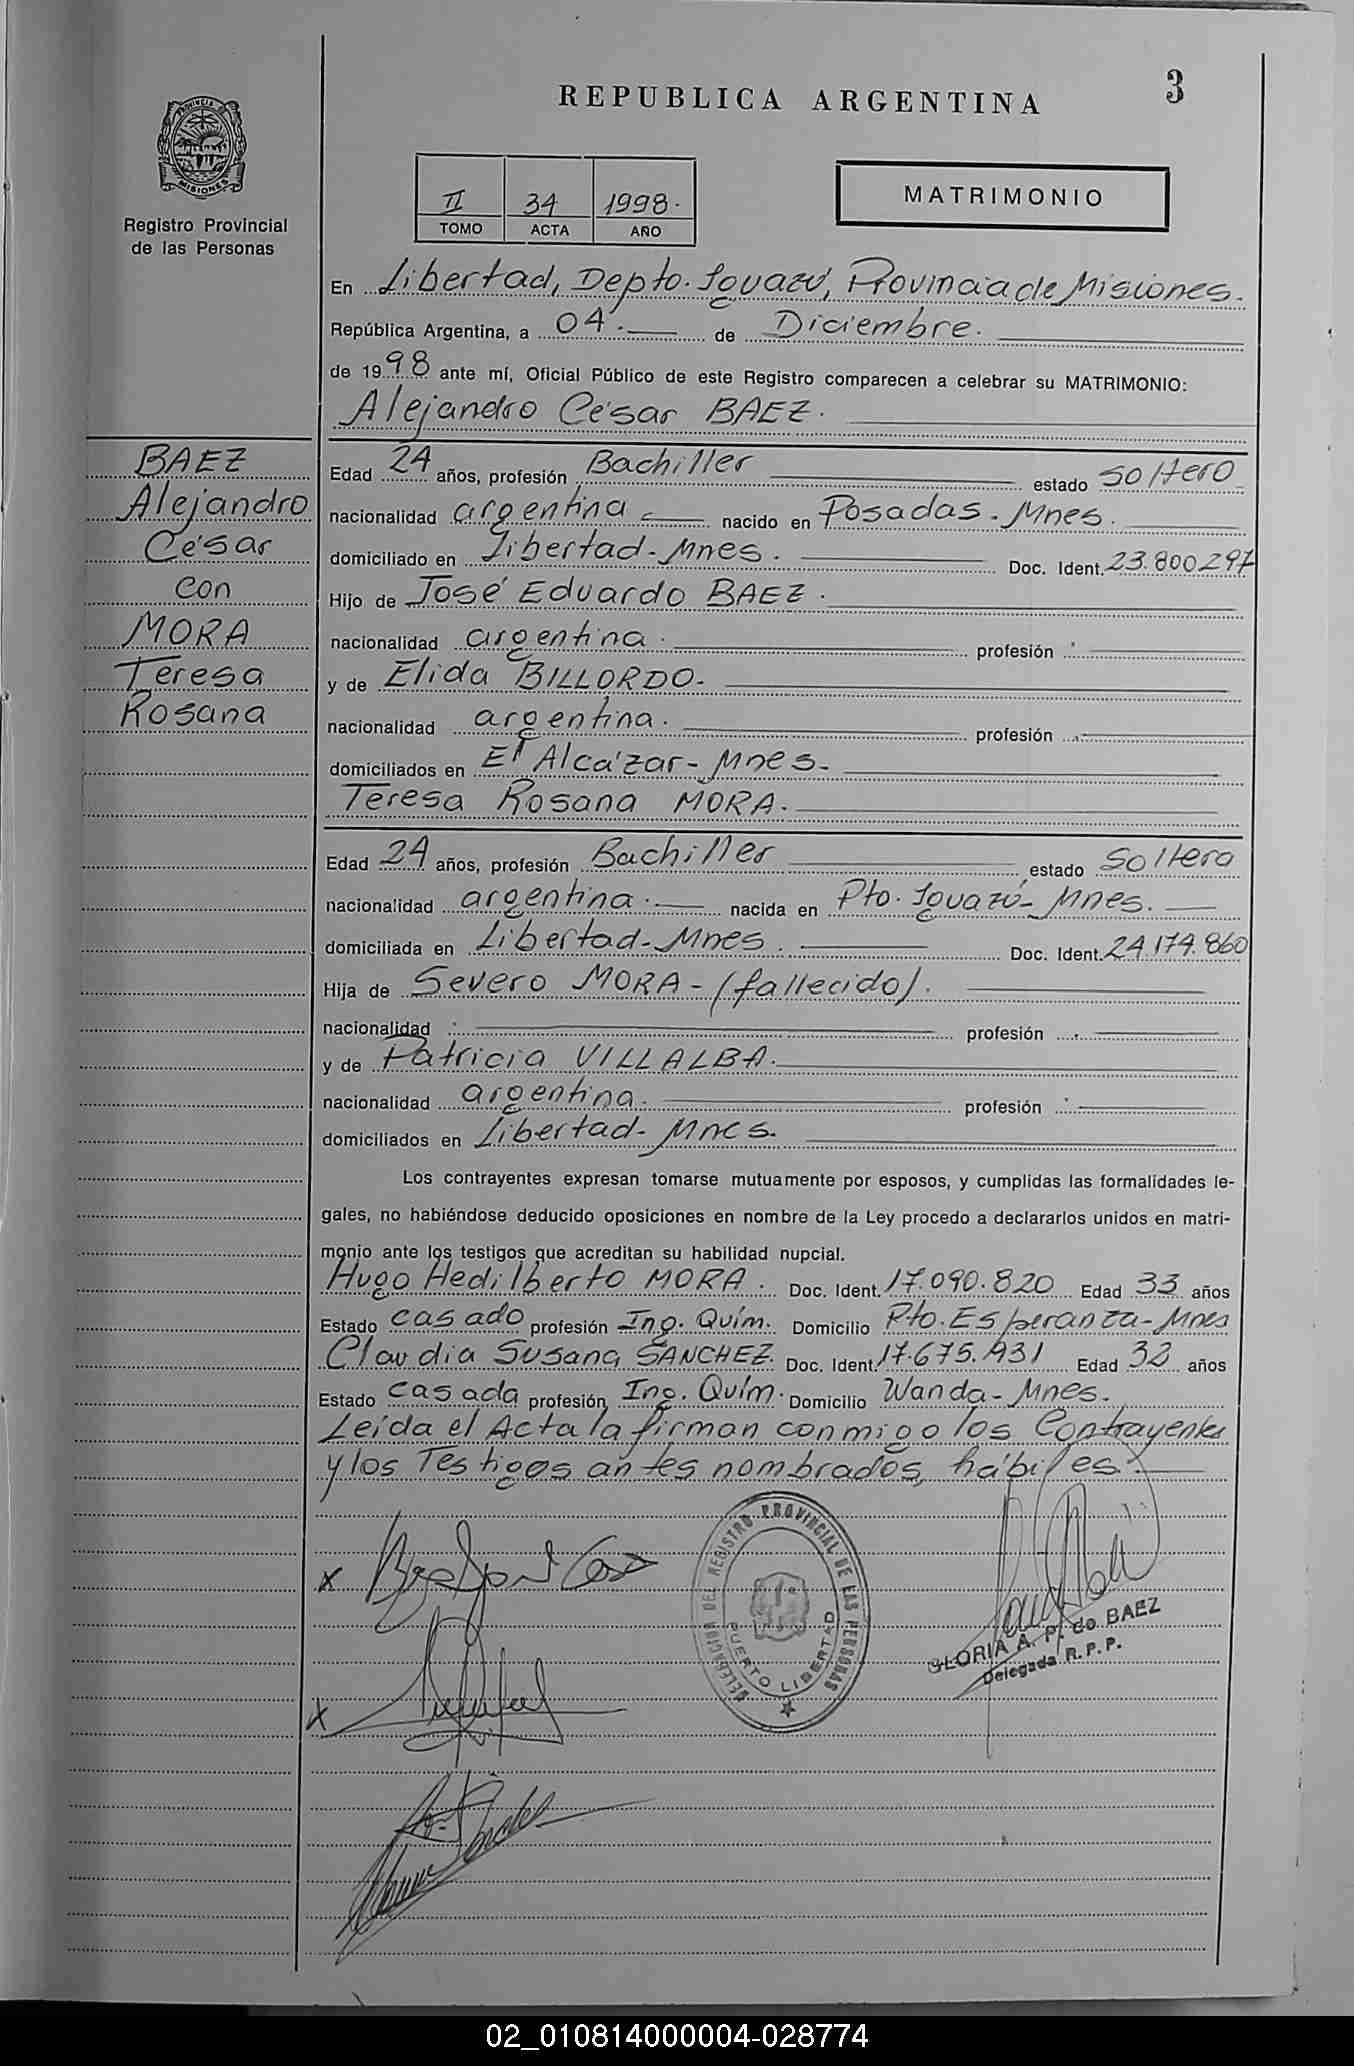 REPUBLICA ARGENTINA
3
PROVINCIA DE
MISIONES
Registro Provincial
de las Personas
II 34 1998.
TOMO ACTA AÑO
MATRIMONIO
En Libertad, Depto. Iguazú, Provincia de Misiones.
República Argentina, a 04. de Diciembre.
de 1998 ante mí, Oficial Público de este Registro comparecen a celebrar su MATRIMONIO:
Alejandro César BAEZ.
BAEZ
Alejandro
César
con
MORA
Teresa
Rosana
Edad 24 años, profesión Bachiller estado soltero
nacionalidad argentina nacido en Posadas - Mnes.
domiciliado en Libertad - Mnes. Doc. Ident. 23.800297
Hijo de José Eduardo BAEZ.
nacionalidad argentina. profesión
y de Elida BILLORDO.
nacionalidad argentina. profesión
domiciliados en El Alcázar - Mnes -
Teresa Rosana MORA.
Edad 24 años, profesión Bachiller estado soltera
nacionalidad argentina. nacida en Pto. Iguazú - Mnes.
domiciliada en Libertad - Mnes. Doc. Ident. 24.174.860
Hija de Severo MORA - (fallecido).
nacionalidad profesión
y de Patricia VILLALBA.
nacionalidad argentina. profesión
domiciliados en Libertad - Mnes.
Los contrayentes expresan tomarse mutuamente por esposos, y cumplidas las formalidades le-
gales, no habiéndose deducido oposiciones en nombre de la Ley procedo a declararlos unidos en matri-
monio ante los testigos que acreditan su habilidad nupcial.
Hugo Hedilberto MORA. Doc. Ident. 17.090.820 Edad 33 años
Estado casado profesión Ing. Quím. Domicilio Pto. Esperanza - Mnes
Claudia Susana SANCHEZ. Doc. Ident. 17.675.931 Edad 32 años
Estado casada profesión Ing. Quím. Domicilio Wanda - Mnes.
Leída el Acta la firman conmigo los Contrayentes
y los Testigos antes nombrados, hábiles.
DELEGACION DEL REGISTRO PROVINCIAL DE LAS PERSONAS
PUERTO LIBERTAD
GLORIA A. P. de BAEZ
Delegada R. P. P.
02_010814000004-028774